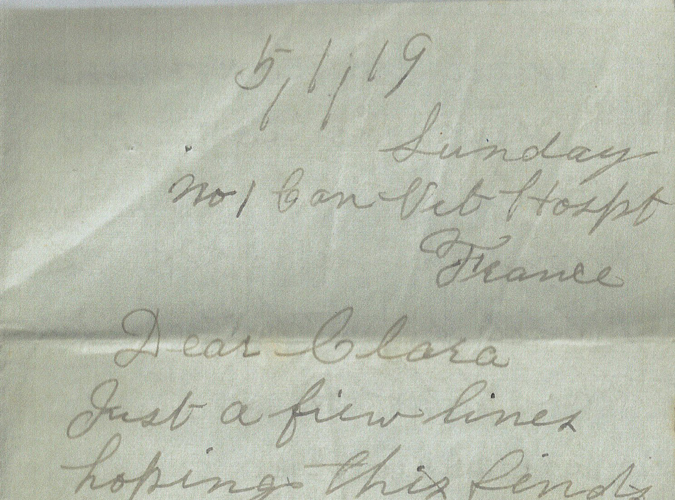 5/1/19
Sunday
No 1 Can Vet Hospt
France
Dear Clara
Just a fiew lines
hoping this finds